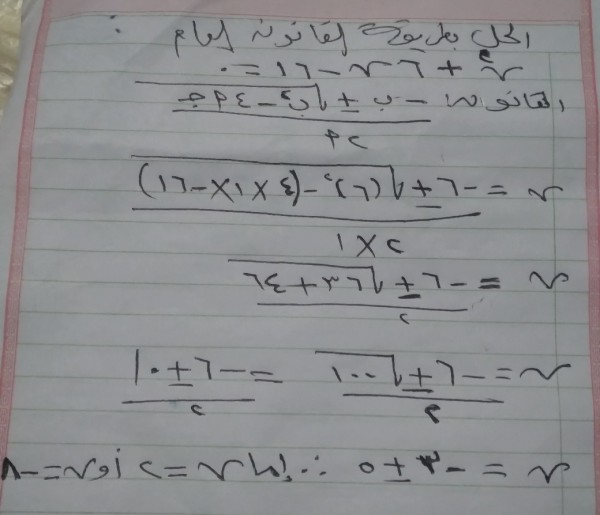 الحل بطريقة القانون العام :
س² + ٦س - ١٦ = ٠
القانون س = -ب ± √ب² - ٤أجـ / ٢أ
س = -٦ ± √(٦)² - (٤ × ١ × -١٦) / ٢ × ١
س = -٦ ± √٣٦ + ٦٤ / ٢
س = -٦ ± √١٠٠ / ٢ = -٦ ± ١٠ / ٢
س = -٣ ± ٥ ∴ إما س = ٢ أو س = -٨